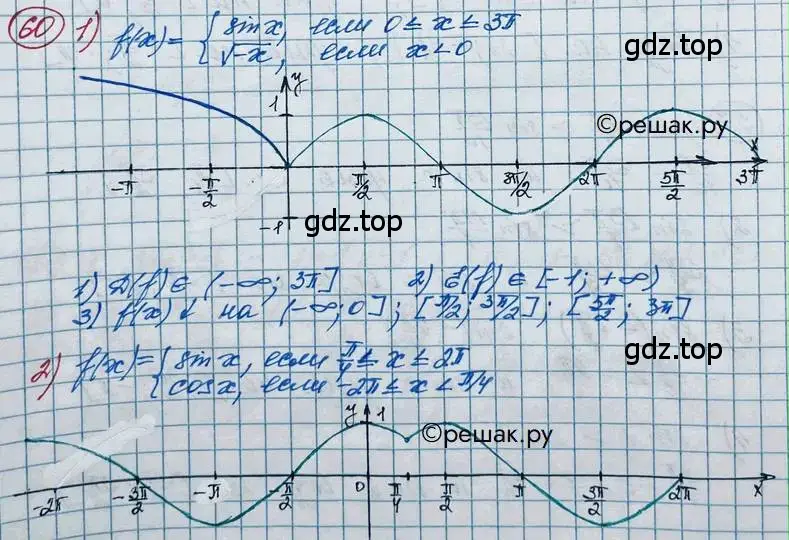 60 1) f(x) = { sin x, если 0 ≤ x ≤ 3π
√-x, если x < 0
gdz.top
y
1
©решак.ру
x
-π -π/2 π/2 π 3π/2 2π 5π/2 3π
-1
gdz.top
1) D(f) ∈ (-∞; 3π] 2) E(f) ∈ [-1; +∞)
3) f(x) ↓ на (-∞; 0]; [π/2; 3π/2]; [5π/2; 3π]
2) f(x) = { sin x, если π/4 ≤ x ≤ 2π
cos x, если -2π ≤ x < π/4
gdz.top
y 1
©решак.ру
-2π -3π/2 -π -π/2 0 π/4 π/2 π 3π/2 2π x
gdz.top